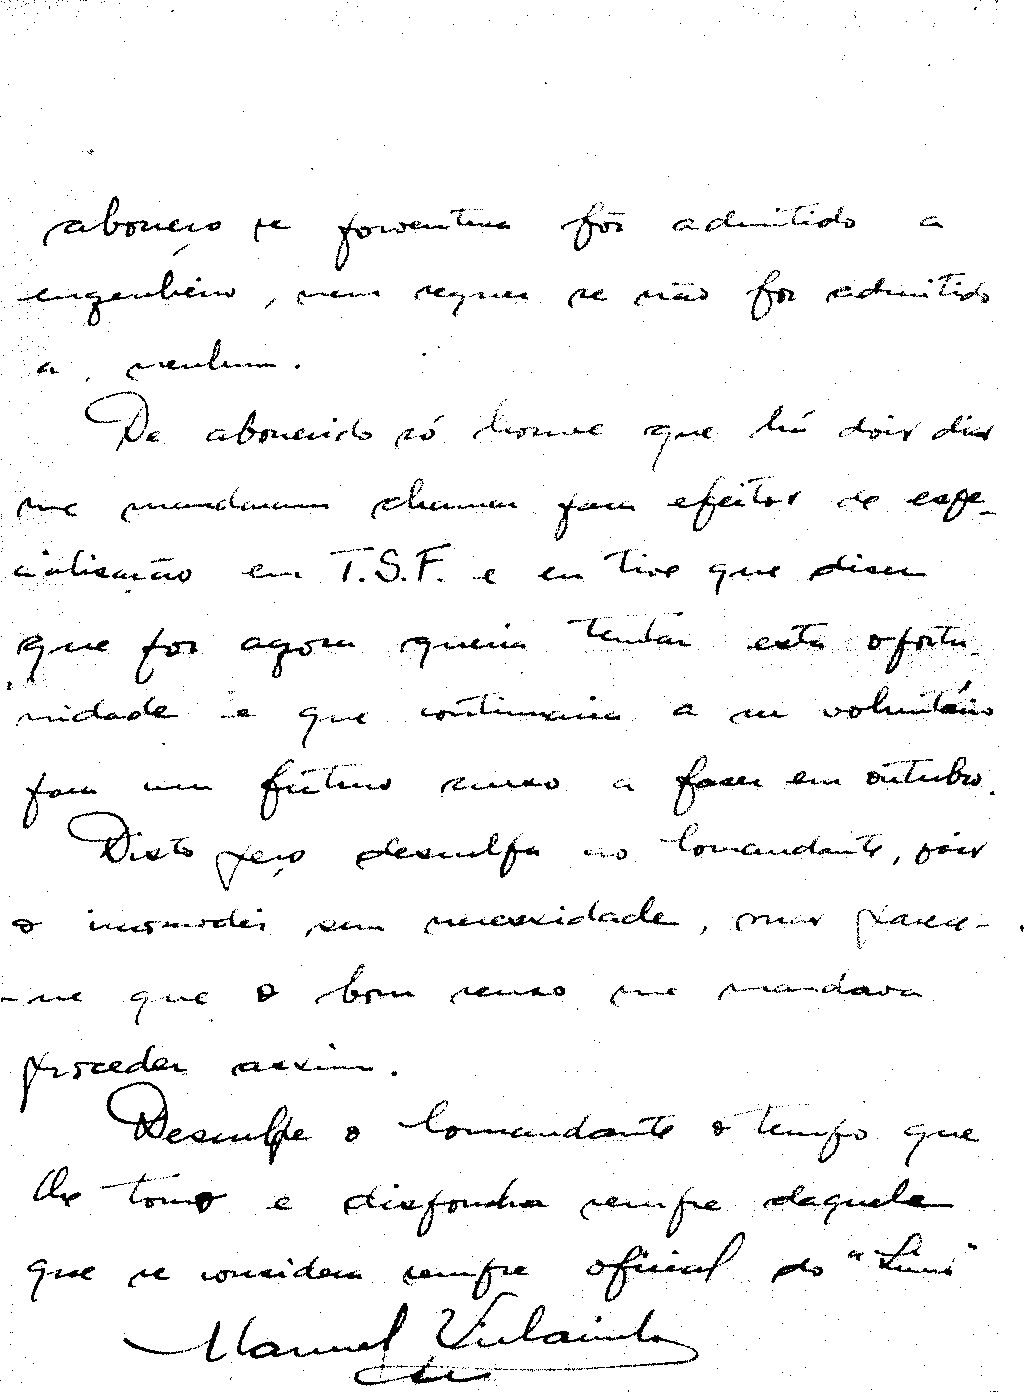 aborreço se porventura fôr admitido a
engenheiro, nem sequer se não for admitido
a nenhum.
De aborrecido só houve que há dois dias
me mandaram chamar para efeitos de espe-
cialisação em T.S.F. e eu tive que diser
que por agora queria tentar esta oportu-
nidade e que continuaria a ser voluntário
para um futuro curso a faser em outubro.
Disto peço desculpa ao Comandante, pois
o incomodei sem necessidade, mas parece-
-me que o bom senso me mandava
proceder assim.
Desculpe o Comandante o tempo que
lhe tomo e disponha sempre daquele
que se considera sempre oficial do "Lima"
Manuel